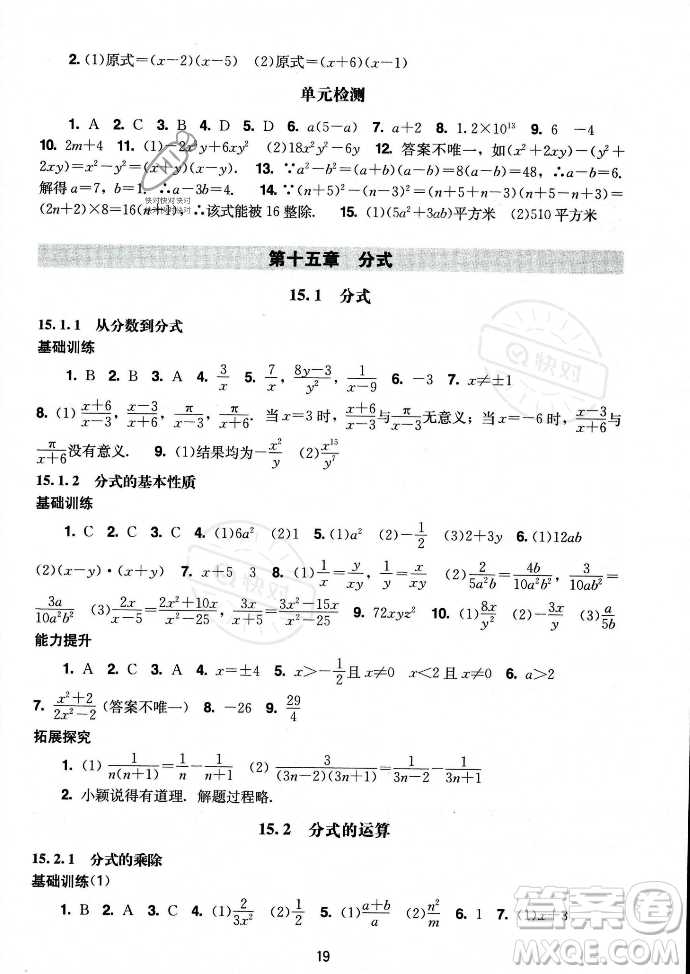 2. (1)原式=(x-2)(x-5) (2)原式=(x+6)(x-1)
单元检测
1. A 2. C 3. B 4. D 5. D 6. a(5-a) 7. a+2 8. 1.2×10¹³ 9. 6 -4
10. 2m+4 11. (1)-2xy+6xy² (2)18y²-6y 12. 答案不唯一,如(x²+2xy)-(y²+
2xy)=x²-y²=(x+y)(x-y). 13. ∵a²-b²=(a+b)(a-b)=48, ∴a-b=6.
解得a=7, b=1. ∴a-3b=4. 14. ∵(n+5)²-(n-3)²=(n+5+n-3)(n+5-n+3)=
(2n+2)×8=16(n+1), ∴该式能被16整除. 15. (1)(5a²+3ab)平方米 (2)510平方米
快对快对快对
快对快对快对
第十五章 分式
15.1 分式
15.1.1 从分数到分式
基础训练
1. B 2. B 3. A 4. 3/x 5. 7/x, (8y-3)/y², 1/(x-9) 6. C 7. x≠±1
8. (1)(x+6)/(x-3), (x-3)/(x+6), π/(x-3), π/(x+6). 当x=3时, (x+6)/(x-3)与π/(x-3)无意义; 当x=-6时, (x-3)/(x+6)与
π/(x+6)没有意义. 9. (1)结果均为-x²/y (2)x¹⁵/y⁷
15.1.2 分式的基本性质
基础训练
1. C 2. C 3. C 4. (1)6a² (2)1 5. (1)a² (2)-1/2 (3)2+3y 6. (1)12ab
(2)(x-y)·(x+y) 7. x+5 3 8. (1)1/x=y/xy, 1/y=x/xy (2)2/5a²b=4b/10a²b², 3/10ab²=
3a/10a²b² (3)2x/(x-5)=(2x²+10x)/(x²-25), 3x/(x+5)=(3x²-15x)/(x²-25) 9. 72xyz² 10. (1)8x/y (2)-3x/y (3)a/5b
能力提升
1. A 2. D 3. C 4. x=±4 5. x>-1/2且x≠0 x<2且x≠0 6. x≠0
7. (x²+2)/(2x²-2)(答案不唯一) 8. -26 9. 29/4
拓展探究
1. (1)1/n(n+1)=1/n-1/(n+1) (2)3/(3n-2)(3n+1)=1/(3n-2)-1/(3n+1)
2. 小颖说得有道理. 解题过程略.
15.2 分式的运算
15.2.1 分式的乘除
基础训练(1)
1. B 2. B 3. C 4. (1)2/3x² (2)3/2x 5. (1)(a+b)/a (2)n²/m 6. 1 7. (1)x+3
19
快对
快对
答案圈
MXQE.COM